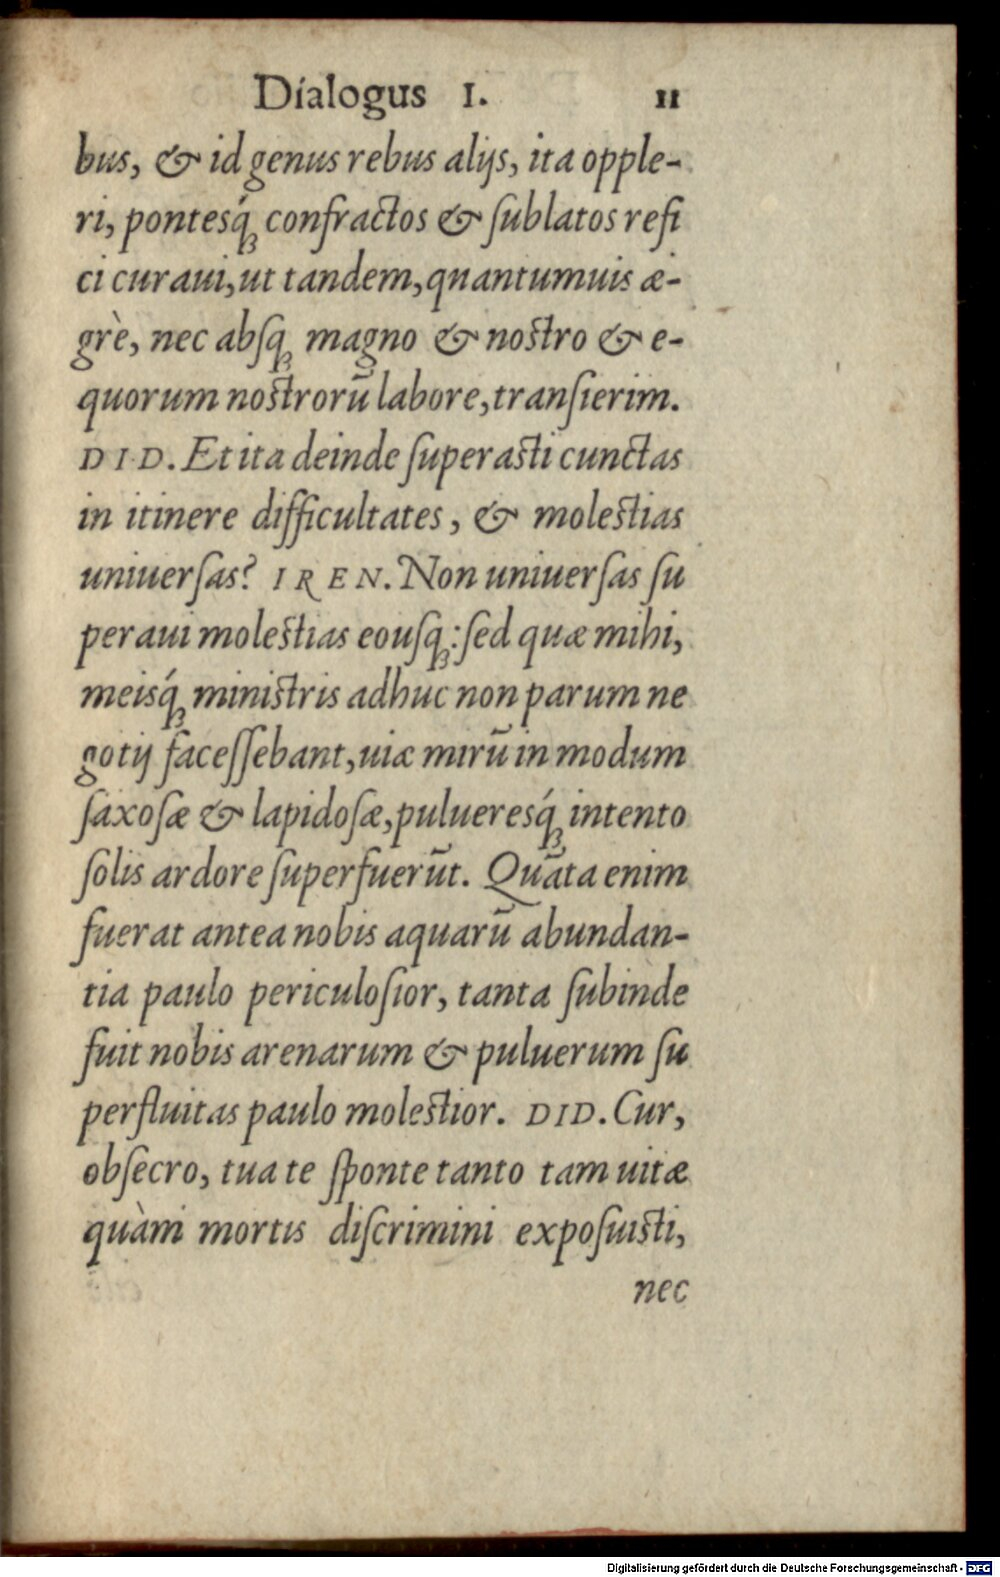 Dialogus I. 11
bus, & id genus rebus alijs, ita opple-
ri, pontesq́ꝫ confractos & ſublatos refi
ci curaui, ut tandem, quantumuis æ-
grè, nec abſqꝫ magno & noſtro & e-
quorum noſtrorũ labore, tranſierim.
DID. Et ita deinde ſuperaſti cunctas
in itinere difficultates, & moleſtias
uniuerſas? IREN. Non uniuerſas ſu
peraui moleſtias eouſqꝫ: ſed quæ mihi,
meisq́ꝫ miniſtris adhuc non parum ne
gotij faceſſebant, uiæ mirũ in modum
ſaxoſæ & lapidoſæ, pulueresq́ꝫ intento
ſolis ardore ſuperfuerũt. Quãta enim
fuerat antea nobis aquarũ abundan-
tia paulo periculoſior, tanta ſubinde
fuit nobis arenarum & puluerum ſu
perfluitas paulo moleſtior. DID. Cur,
obſecro, tua te ſponte tanto tam uitæ
quàm mortis diſcrimini expoſuiſti,
nec
Digitalisierung gefördert durch die Deutsche Forschungsgemeinschaft - DFG